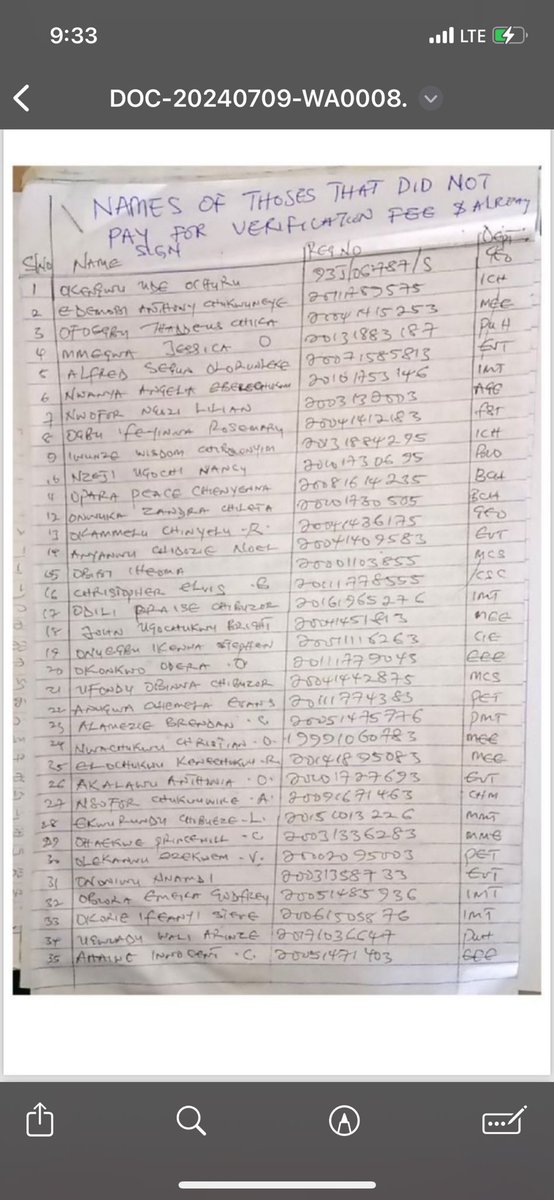 9:33
LTE
DOC-20240709-WA0008.
NAMES OF THOSES THAT DID NOT
PAY FOR VERIFICATION FEE & ALREADY
SIGN
S/NO NAME REG NO DEPT
1 UDE 935/06787/S GEO
2 EDEMOBI ANTHONY CHUKWUNEYE ICH
3 OFOEGBU THADDEUS CHIKA 20041415253 MEE
4 MMEGWA JESSICA O 20131883187 PUH
5 ALFRED SEGUN OLORUNLEKE 20071585813 EVT
6 NWANYA ANGELA 20101753146 IMT
7 NWOFOR NGOZI LILIAN AGE
8 OGBU IFEYINWA ROSEMARY 20041412183
9 WISDOM 20131884295 ICH
10 NZEJI UGOCHI NANCY 20101730695
11 OPARA PEACE CHINYENNA 20081614235 BCH
12 ONWUKA ZANDRA CHILETA 20101730505 BCH
13 OKAMMELU CHINYELU - R. 20041436175 GEO
14 ANYANWU CHIDOZIE NOEL 20041409583 EVT
15 IHEOMA 20001103855 MCS
16 CHRISTOPHER ELVIS . E 20111778555 CSC
17 ODILI PRAISE CHIBUZOR 20161965276 IMT
18 JOHN UGOCHUKWU BRIGHT MEE
19 ONYEGBU IKENNA STEPHEN 20051116263 CIE
20 OKONKWO OBERA . O 20111779045 EEE
21 UFONDU OBINNA CHIBUZOR 20041442875 MCS
22 EVANS 20111774383 PET
23 ALAMEZIE BRENDAN . C 20051475776 PMT
24 NWACHUKWU CHRISTIAN - O. 19991060783 MEE
25 ELOCHUKWU KENECHUKWU - R. 20141895083 MEE
26 AKALAWU ANTHONIA . O. 20101727693 EVT
27 NSOFOR CHUKWUWIKE . A. 20091671463 CHM
28 CHIBUEZE - L. MMT
29 OHAEKWE PRINCEWILL - C 20031336283 MME
30 OZEKWEM - V. 20002095003 PET
31 ONONIWU ANAMDI 200313587 33 EVT
32 OBIORA EMEKA GODFREY 20051485936 IMT
33 OKORIE IFEANYI STEVE 200615058 76 IMT
34 WALI ARINZE 20171036647 PUH
35 AMAING INNOCENT . C. 20051471403 EEE